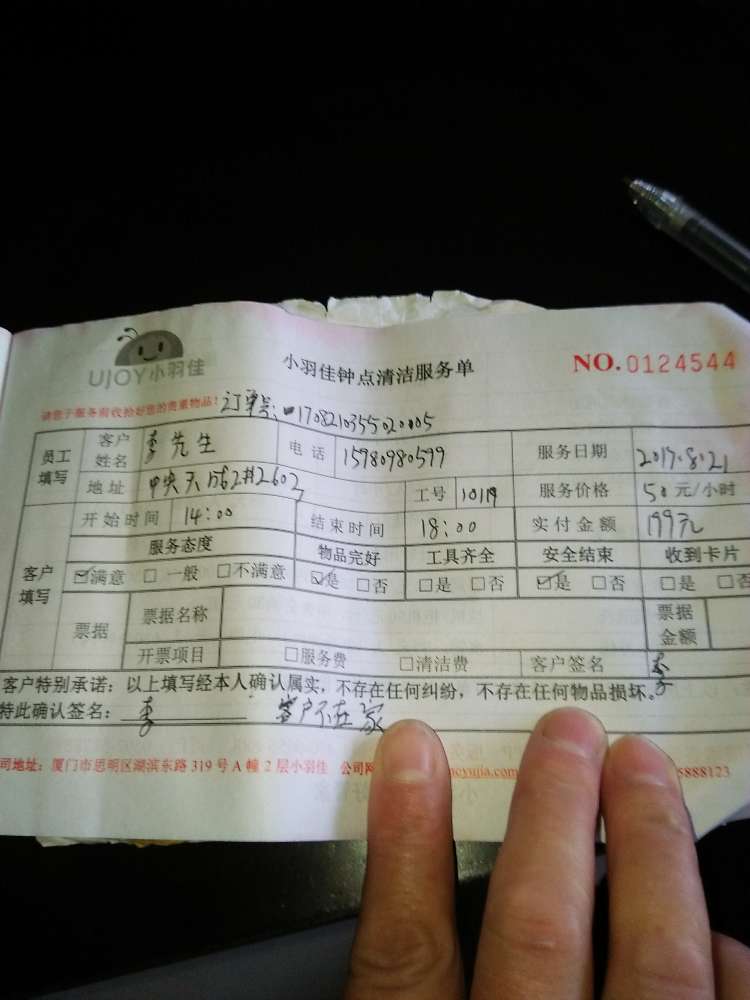 UJOY小羽佳
小羽佳钟点清洁服务单
NO.0124544
请您于服务前收拾好您的贵重物品!
订单号:1708210355020005
员工填写 客户姓名 李先生 电话 15980980599 服务日期 2017.8.21
地址 2602 工号 10119 服务价格 50元/小时
客户填写 开始时间 14:00 结束时间 18:00 实付金额 199元
服务态度 物品完好 工具齐全 安全结束 收到卡片
☑满意 □一般 □不满意 ☑是 □否 □是 □否 ☑是 □否 □是 □否
票据 票据名称 票据金额
开票项目 □服务费 □清洁费 客户签名 李
客户特别承诺:以上填写经本人确认属实,不存在任何纠纷,不存在任何物品损坏。
特此确认签名: 李 客户不在家
司地址:厦门市思明区湖滨东路319号A幢2层小羽佳 公司网 oyujia.com 5888123